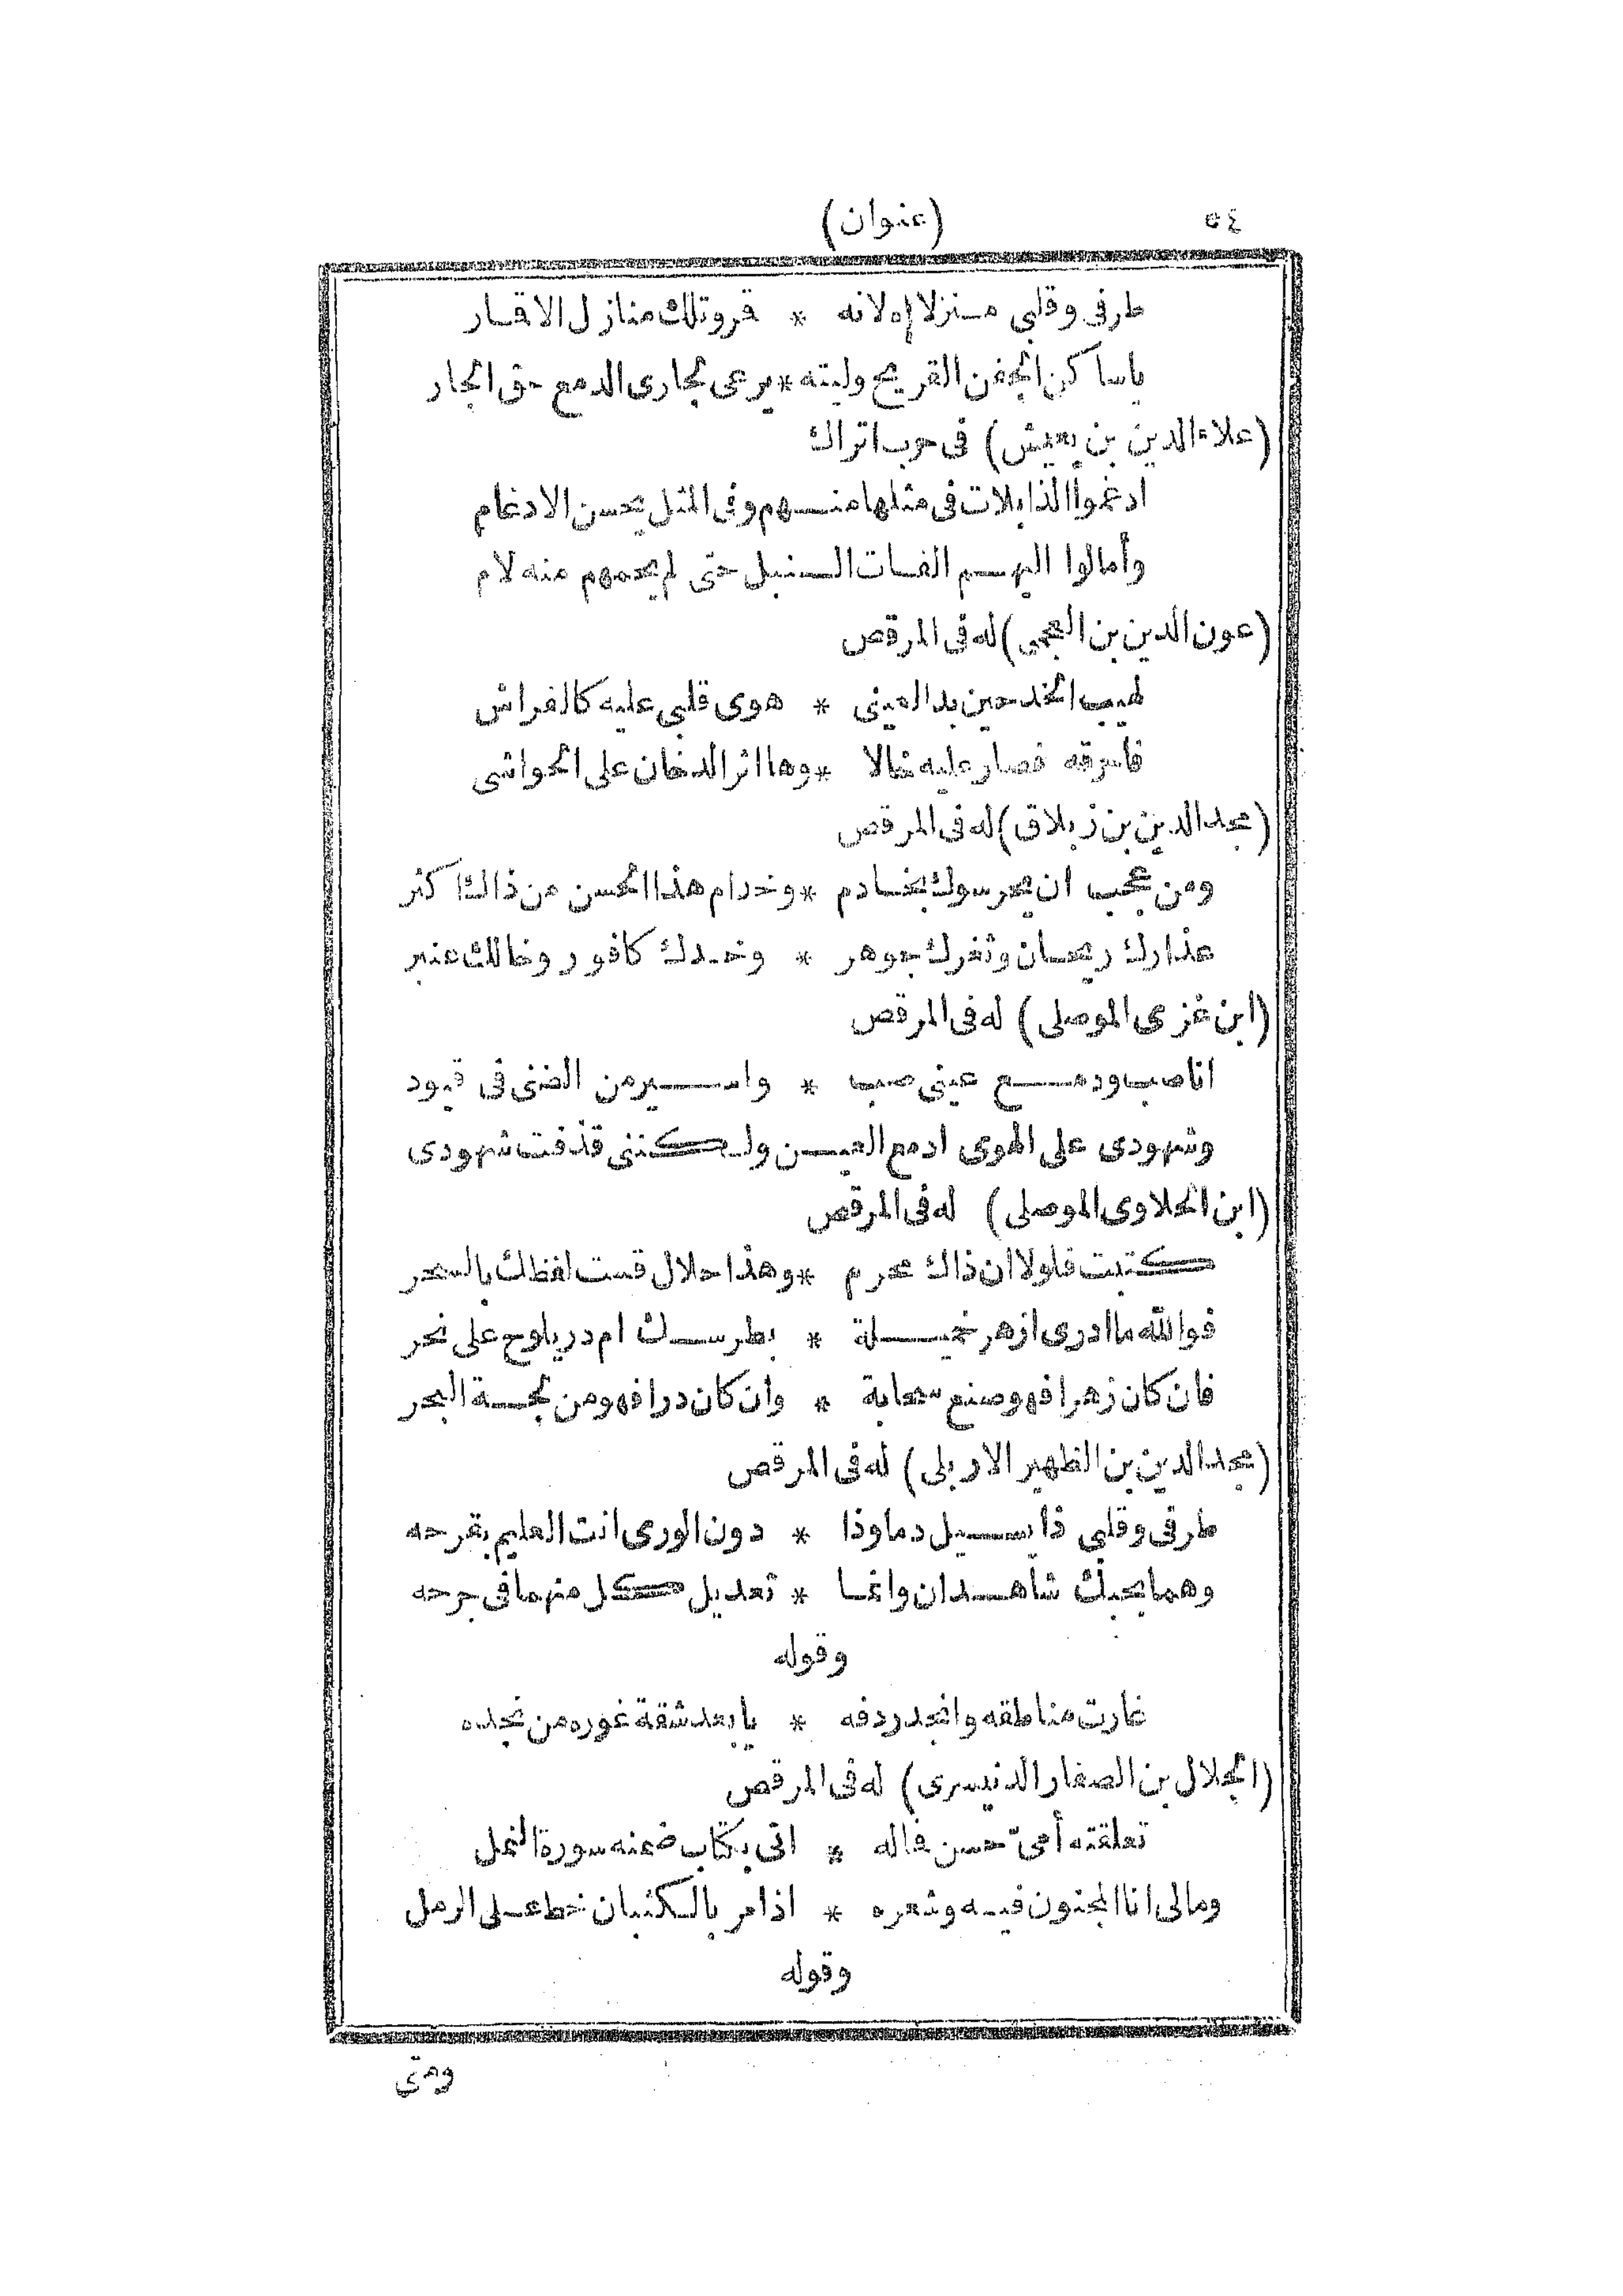 ٥٤
(عنوان)
طرفي وقلبي منزلاه لانه * قمر وتلك منازل الاقمار
ياسا كن الجفن القريح وليته * يرعى لجارى الدمع حق الجار
(علاء الدين بن يعيش) فى حرب اتراك
ادغموا الذابلات فى مثلها منهم وفى المثل يحسن الادغام
وأمالوا اليهم الفات النبل حتى لم يحمهم منه لام
(عون الدين بن العجمى) له فى المرقص
لهيب الخد حين بدا لعينى * هوى قلبى عليه كالفراش
فأحرقه فصار عليه خالا * وها اثر الدخان على الحواشى
(مجد الدين بن زبلاق) له فى المرقص
ومن عجب ان يحرسوك بخادم * وخدام هذا الحسن من ذاك اكثر
عذارك ريحان وثغرك جوهر * وخدك كافور وخالك عنبر
(ابن غزى الموصلى) له فى المرقص
انا صب ودمع عينى صب * واسير من الضنى فى قيود
وشهودى على الهوى ادمع العين ولكننى قذفت شهودى
(ابن الحلاوى الموصلى) له فى المرقص
كتبت فلولا ان ذاك محرم * وهذا حلال قست لفظك بالسحر
فوالله ما ادرى ازهر خميلة * بطرسك ام در يلوح على نحر
فان كان زهرا فهو صنع سحابة * وان كان درا فهو من لجة البحر
(مجد الدين بن الظهير الاربلى) له فى المرقص
طرفى وقلبى ذا يسيل دما وذا * دون الورى انت العليم بقرحه
وهما بحبك شاهدان وانما * تعديل كل منهما فى جرحه
وقوله
غارت مناطقه وانجد ردفه * يا بعد شقة غوره من نجده
(الجلال بن الصفار الدنيسرى) له فى المرقص
تعلقته أمى حسن فاله * اتى بكتاب ضمنه سورة النمل
ومالى انا المجنون فيه وشعره * اذا مر بالكثبان خط على الرمل
وقوله
ومتى